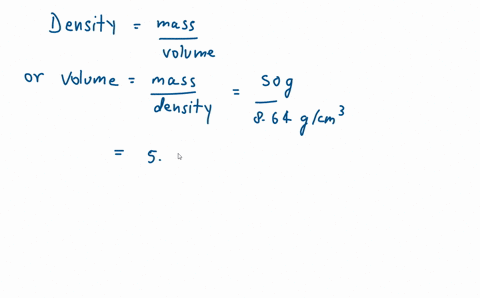 Density = mass / volume
or Volume = mass / density = 50g / 8.64 g/cm³
= 5.